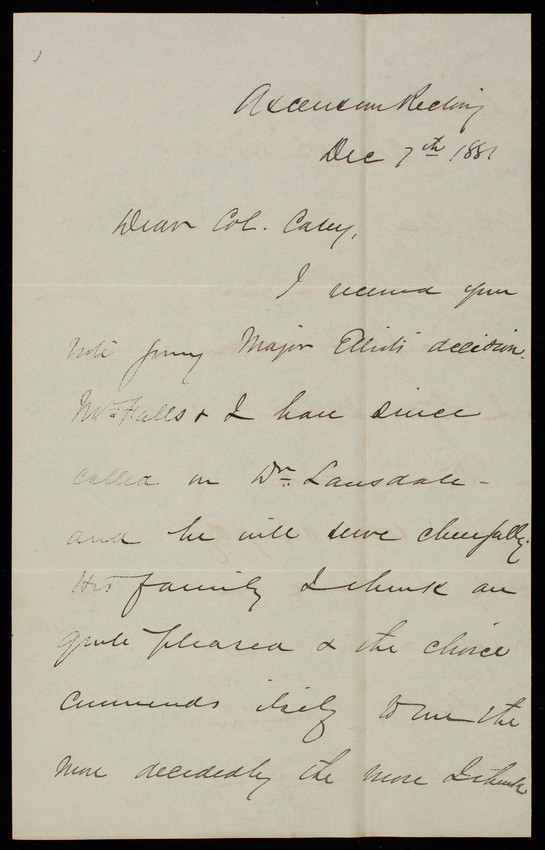 Ascension Rectory
Dec 7th 1881
Dear Col. Casey,
I received your
note giving Major Elliot's decision.
Mr Halls & I have since
called on Dr. Lansdale -
and he will serve cheerfully.
His family I think are
quite pleased & the choice
commends itself to me the
more decidedly the more I think